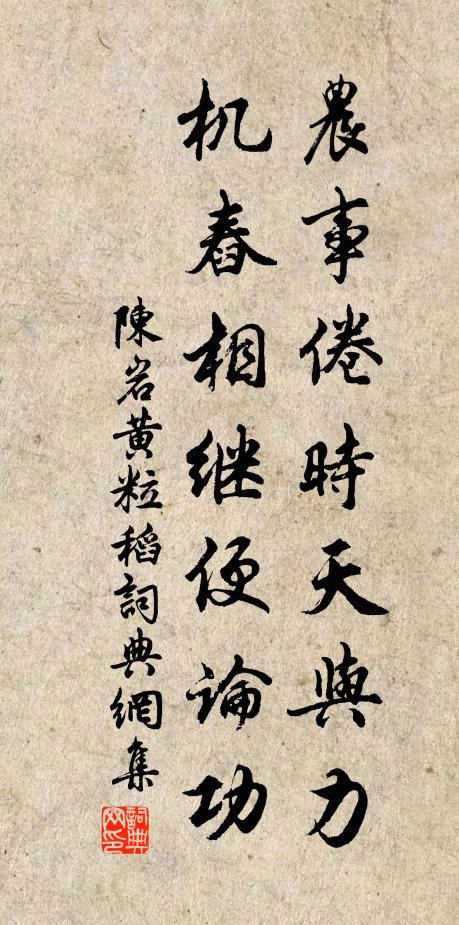 農事倦時天與力
机舂相继便論功
陳岩黄粒稻詞典網集
詞典网印